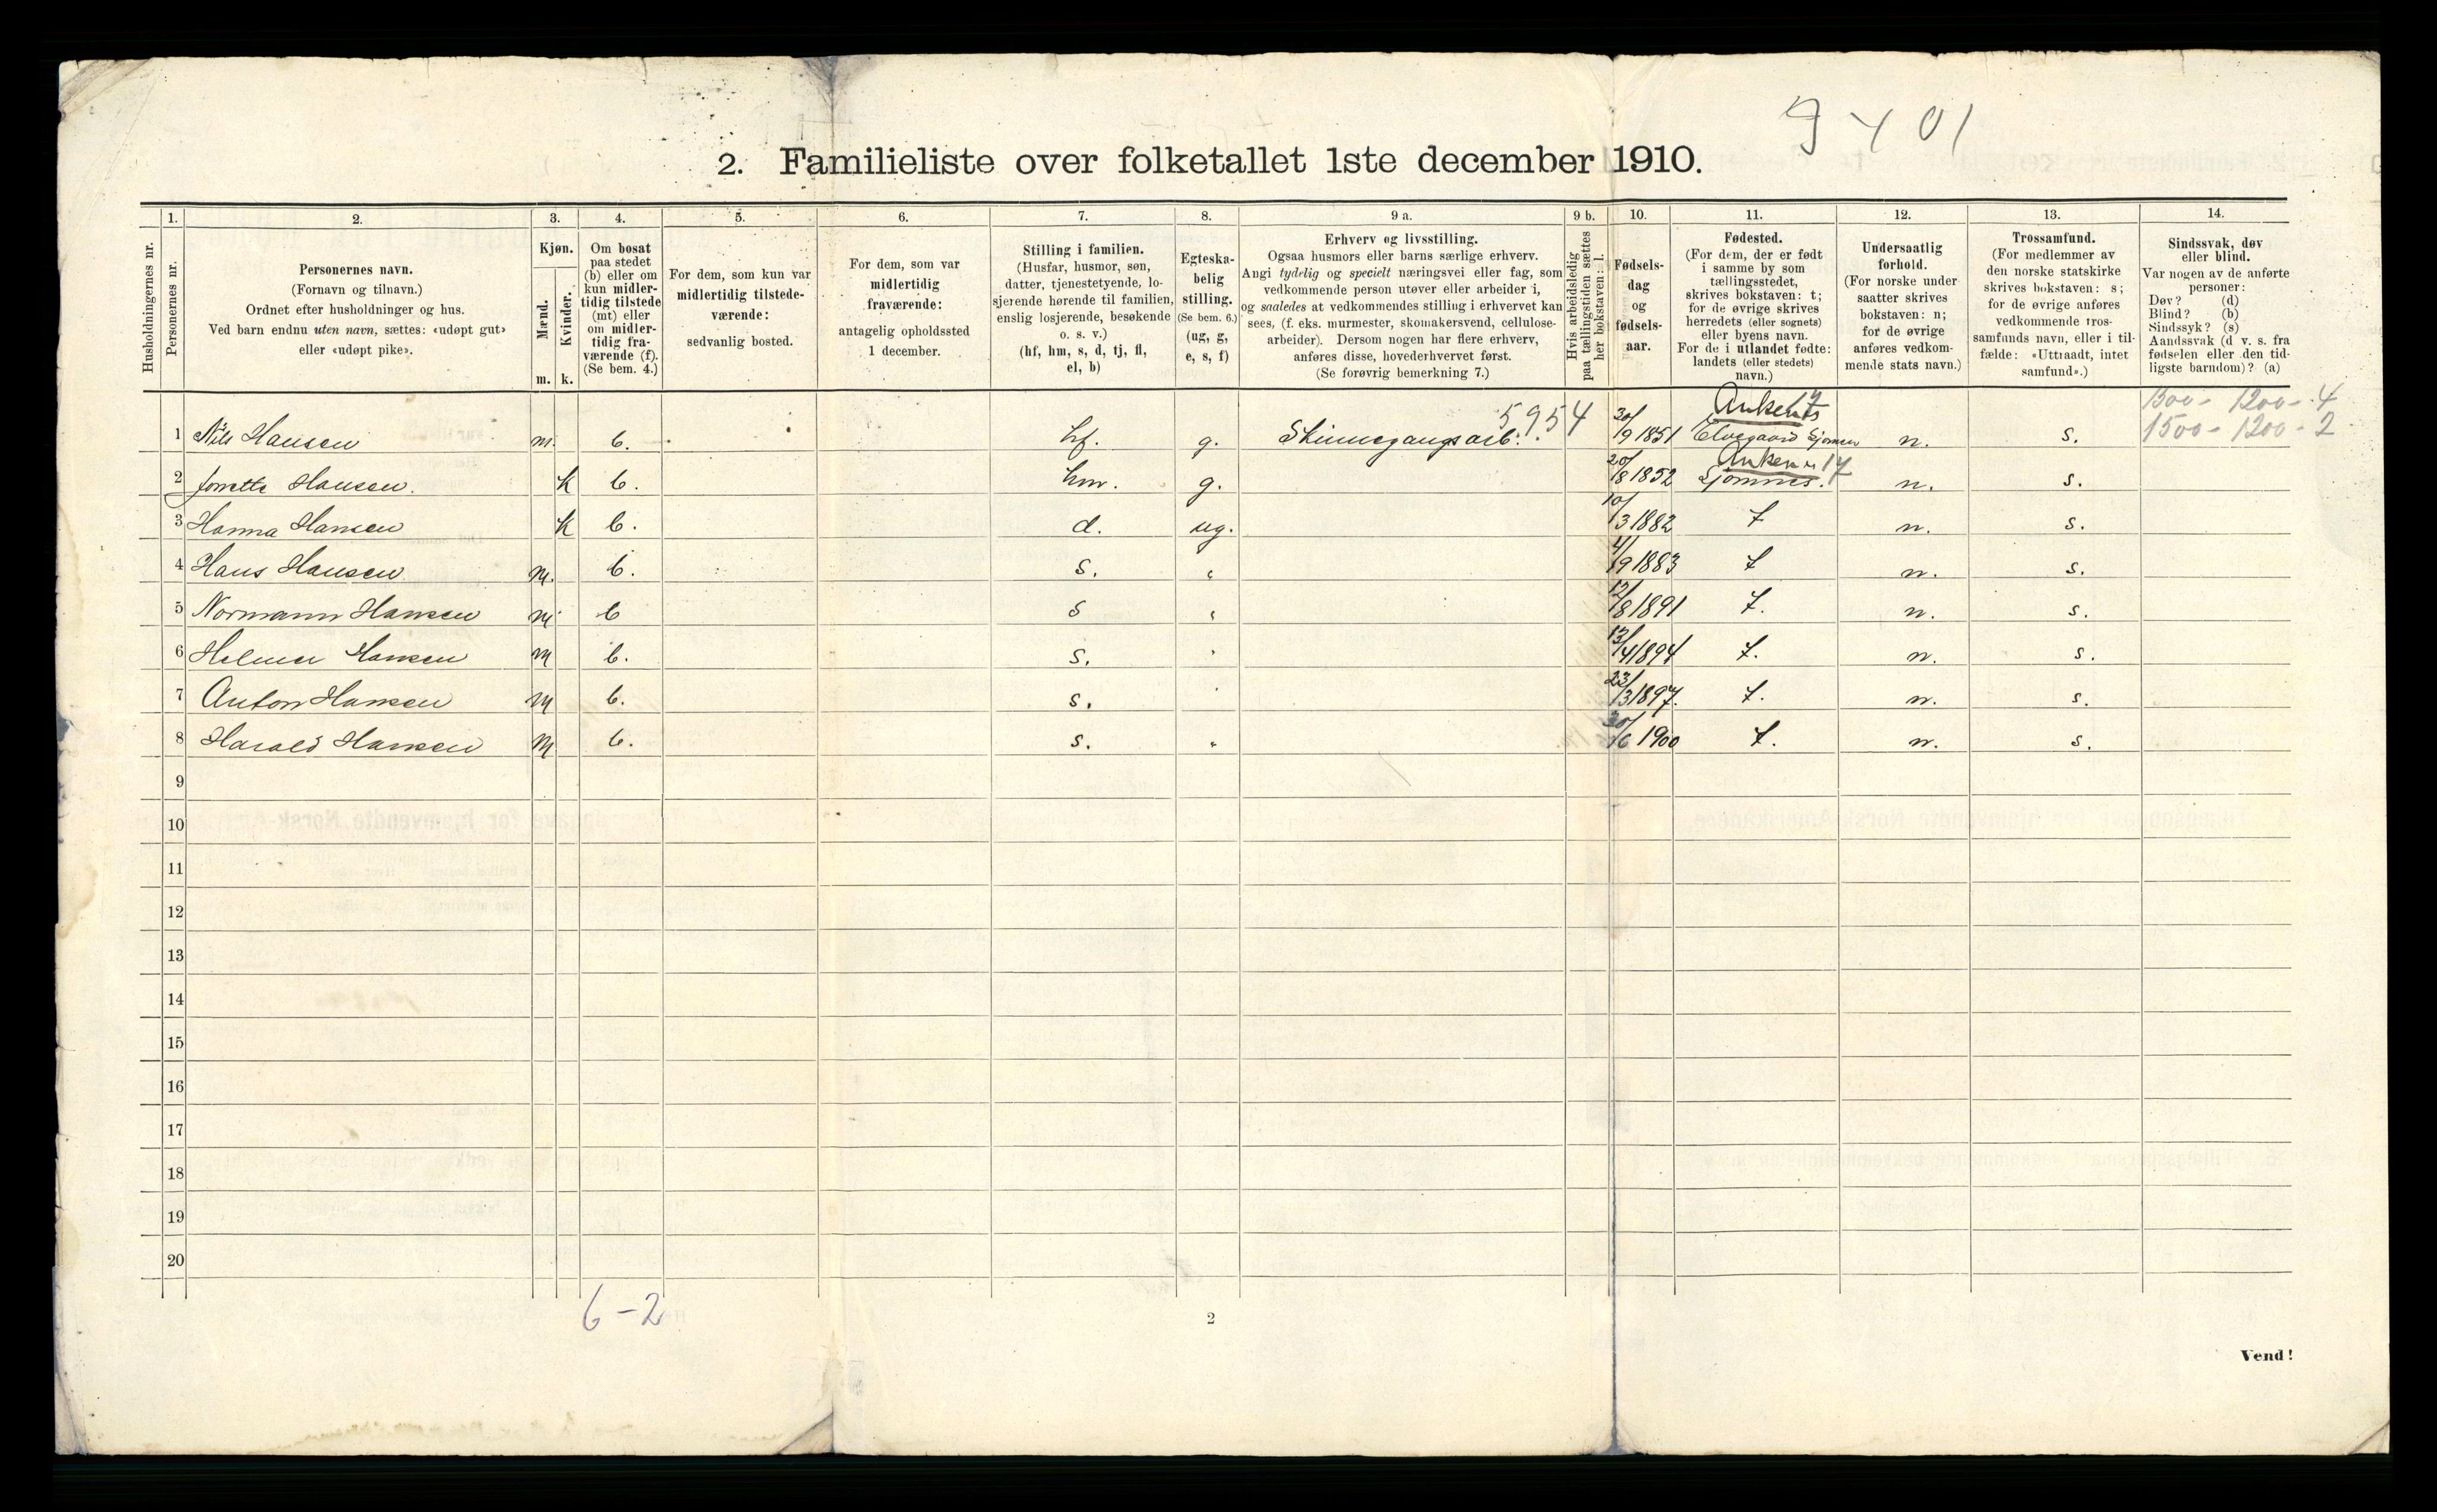 9401
2. Familieliste over folketallet 1ste december 1910.
Husholdningernes nr.
1.
Personernes nr.
2.
Personernes navn.
(Fornavn og tilnavn.)
Ordnet efter husholdninger og hus.
Ved barn endnu uten navn, sættes: «udøpt gut»
eller «udøpt pike».
3.
Kjøn.
Mænd.
Kvinder.
m. k.
4.
Om bosat
paa stedet
(b) eller om
kun midler-
tidig tilstede
(mt) eller
om midler-
tidig fra-
værende (f).
(Se bem. 4.)
5.
For dem, som kun var
midlertidig tilstede-
værende:
sedvanlig bosted.
6.
For dem, som var
midlertidig
fraværende:
antagelig opholdssted
1 december.
7.
Stilling i familien.
(Husfar, husmor, søn,
datter, tjenestetyende, lo-
sjerende hørende til familien,
enslig losjerende, besøkende
o. s. v.)
(hf, hm, s, d, tj, fl,
el, b)
8.
Egteska-
belig
stilling.
(Se bem. 6.)
(ug, g,
e, s, f)
9 a.
Erhverv og livsstilling.
Ogsaa husmors eller barns særlige erhverv.
Angi tydelig og specielt næringsvei eller fag, som
vedkommende person utøver eller arbeider i,
og saaledes at vedkommendes stilling i erhvervet kan
sees, (f. eks. murmester, skomakersvend, cellulose-
arbeider). Dersom nogen har flere erhverv,
anføres disse, hovederhvervet først.
(Se forøvrig bemerkning 7.)
9 b.
Hvis arbeidsledig
paa tællingstiden sættes
her bokstaven: l.
10.
Fødsels-
dag
og
fødsels-
aar.
11.
Fødested.
(For dem, der er født
i samme by som
tællingsstedet,
skrives bokstaven: t;
for de øvrige skrives
herredets (eller sognets)
eller byens navn.
For de i utlandet fødte:
landets (eller stedets)
navn.)
12.
Undersaatlig
forhold.
(For norske under
saatter skrives
bokstaven: n;
for de øvrige
anføres vedkom-
mende stats navn.)
13.
Trossamfund.
(For medlemmer av
den norske statskirke
skrives bokstaven: s;
for de øvrige anføres
vedkommende tros-
samfunds navn, eller i til-
fælde: «Uttraadt, intet
samfund».)
14.
Sindssvak, døv
eller blind.
Var nogen av de anførte
personer:
Døv? (d)
Blind? (b)
Sindssyk? (s)
Aandssvak (d v. s. fra
fødselen eller den tid-
ligste barndom)? (a)
Ankenes 17 1300 - 1200 - 4
1 Nils Hansen m. b. hf. g. Skinnegangsarb. 5954 30/9 1851 Elvegaard Sjomen n. s. 1500 - 1200 - 2
Ankenes 17
2 Jonette Hansen. k b. hm. g. 20/8 1852 Sjomnes. n. s.
3 Hanna Hansen k b. d. ug. 10/3 1882 t n. s.
4 Hans Hansen m. b. s. " 4/9 1883 t n. s.
5 Normann Hansen m. b s " 12/8 1891 t. n. s.
6 Helmer Hansen m b. s. " 13/4 1894 t. n. s.
7 Anton Hansen m b. s. " 23/3 1897. t. n. s.
8 Harald Hansen m b. s. " 30/6 1900 t. n. s.
9
10
11
12
13
14
15
16
17
18
19
20
6-2
2
Vend!